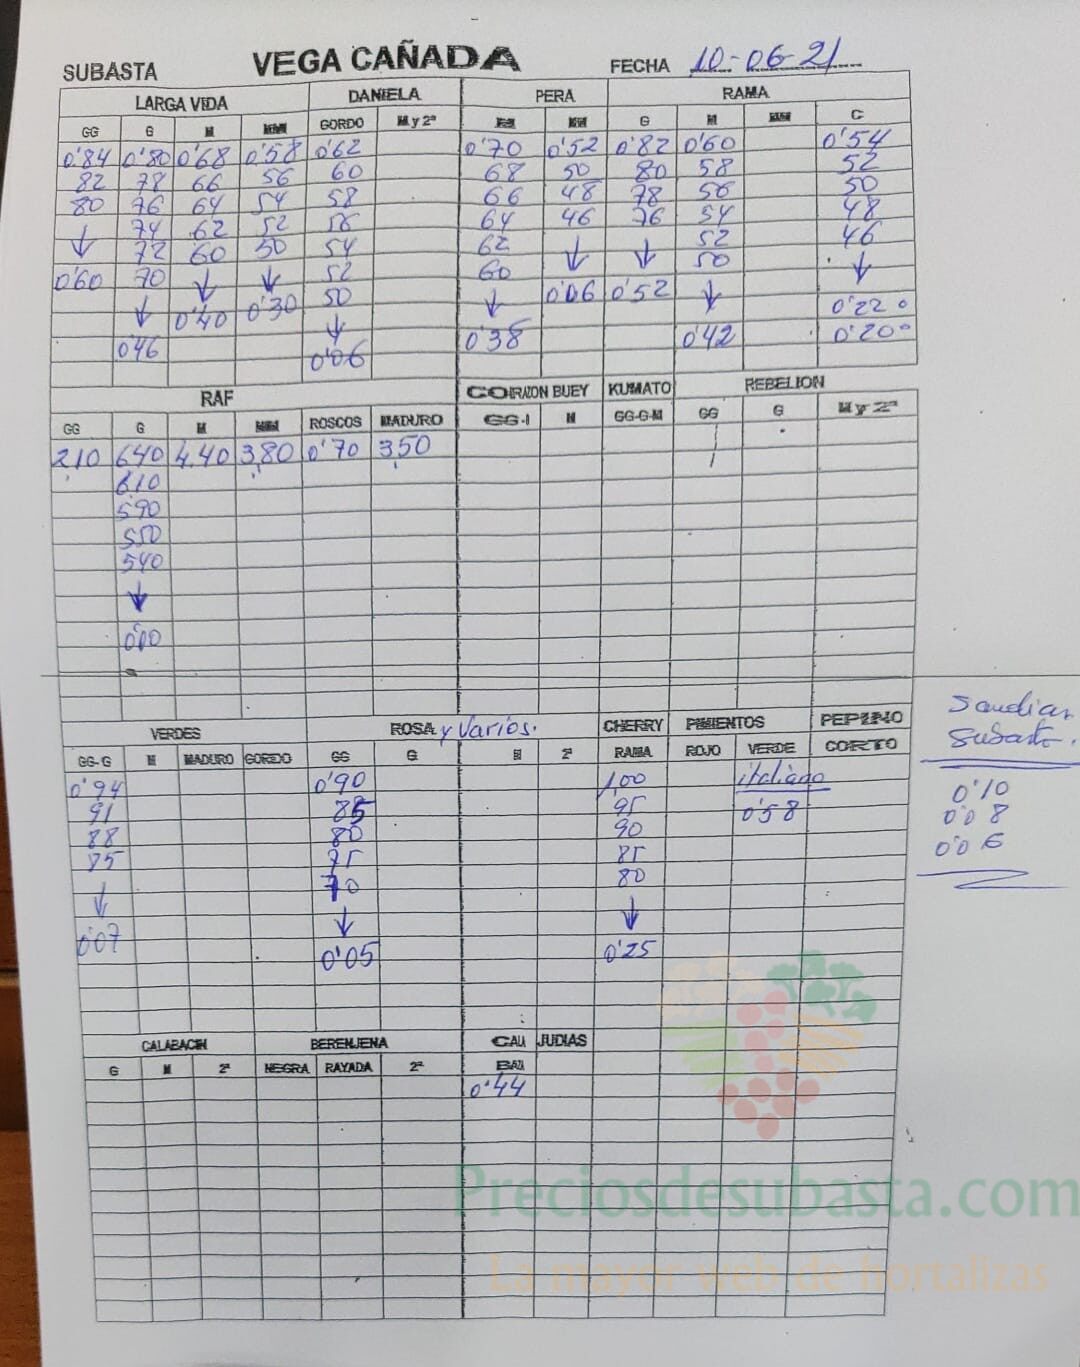 SUBASTA VEGA CAÑADA FECHA 10-06-21
LARGA VIDA DANIELA PERA RAMA
GG G M MM GORDO M y 2ª G M MM G M MM C
0'84 0'80 0'68 0'58 0'62 0'70 0'52 0'82 0'60 0'54
82 78 66 56 60 68 50 80 58 52
80 76 64 54 58 66 48 78 56 50
↓ 74 62 52 56 64 46 76 54 48
72 60 50 54 62 ↓ ↓ 52 46
0'60 70 ↓ ↓ 52 60 0'06 0'52 50 ↓
↓ 0'40 0'30 50 ↓ ↓ 0'22
0'46 ↓ 0'38 0'42 0'20
0'06
RAF CORAZON BUEY KUMATO REBELION
GG G M MM ROSCOS MADURO GG-1 M GG-G-M GG G M y 2ª
210 640 4.40 3,80 0'70 3,50
610
590
550
540
↓
000
VERDES ROSA y Varios. CHERRY PIMIENTOS PEPINO
GG-G M MADURO GORDO GG G M 2ª RAMA ROJO VERDE CORTO
0'94 0'90 1,00 italiano
91 85 95 0'58
88 80 90
85 75 85
↓ 70 80
0'07 ↓ ↓
0'05 0'25
Sandias
Subasta.
0'10
0'08
0'06
CALABACIN BERENJENA CALA JUDIAS
G M 2ª NEGRA RAYADA 2ª BAZA
0'44
Preciosdesubasta.com
La mayor web de hortalizas